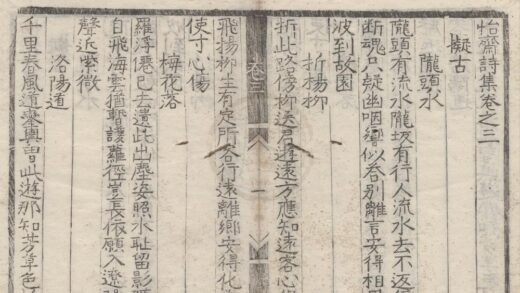 怡齋詩集卷之三
擬古
隴頭水
隴頭有流水隴坂有行人流水去不返
断魂只疑幽咽響似吞別離言安得相
波到故園
折楊柳
折此路傍柳送君遊遠方應知遠客心
卷三
一
飛揚柳生有定所行遠離鄉安得化
使寸心傷
梅花落
羅浮僊已去遺此出塵姿照水耻留影
自飛海雲猶暫護蘿徑豈長依願入遼
聲近紫微
洛陽道
千里春風道乘輿曾此遊那知芳草色